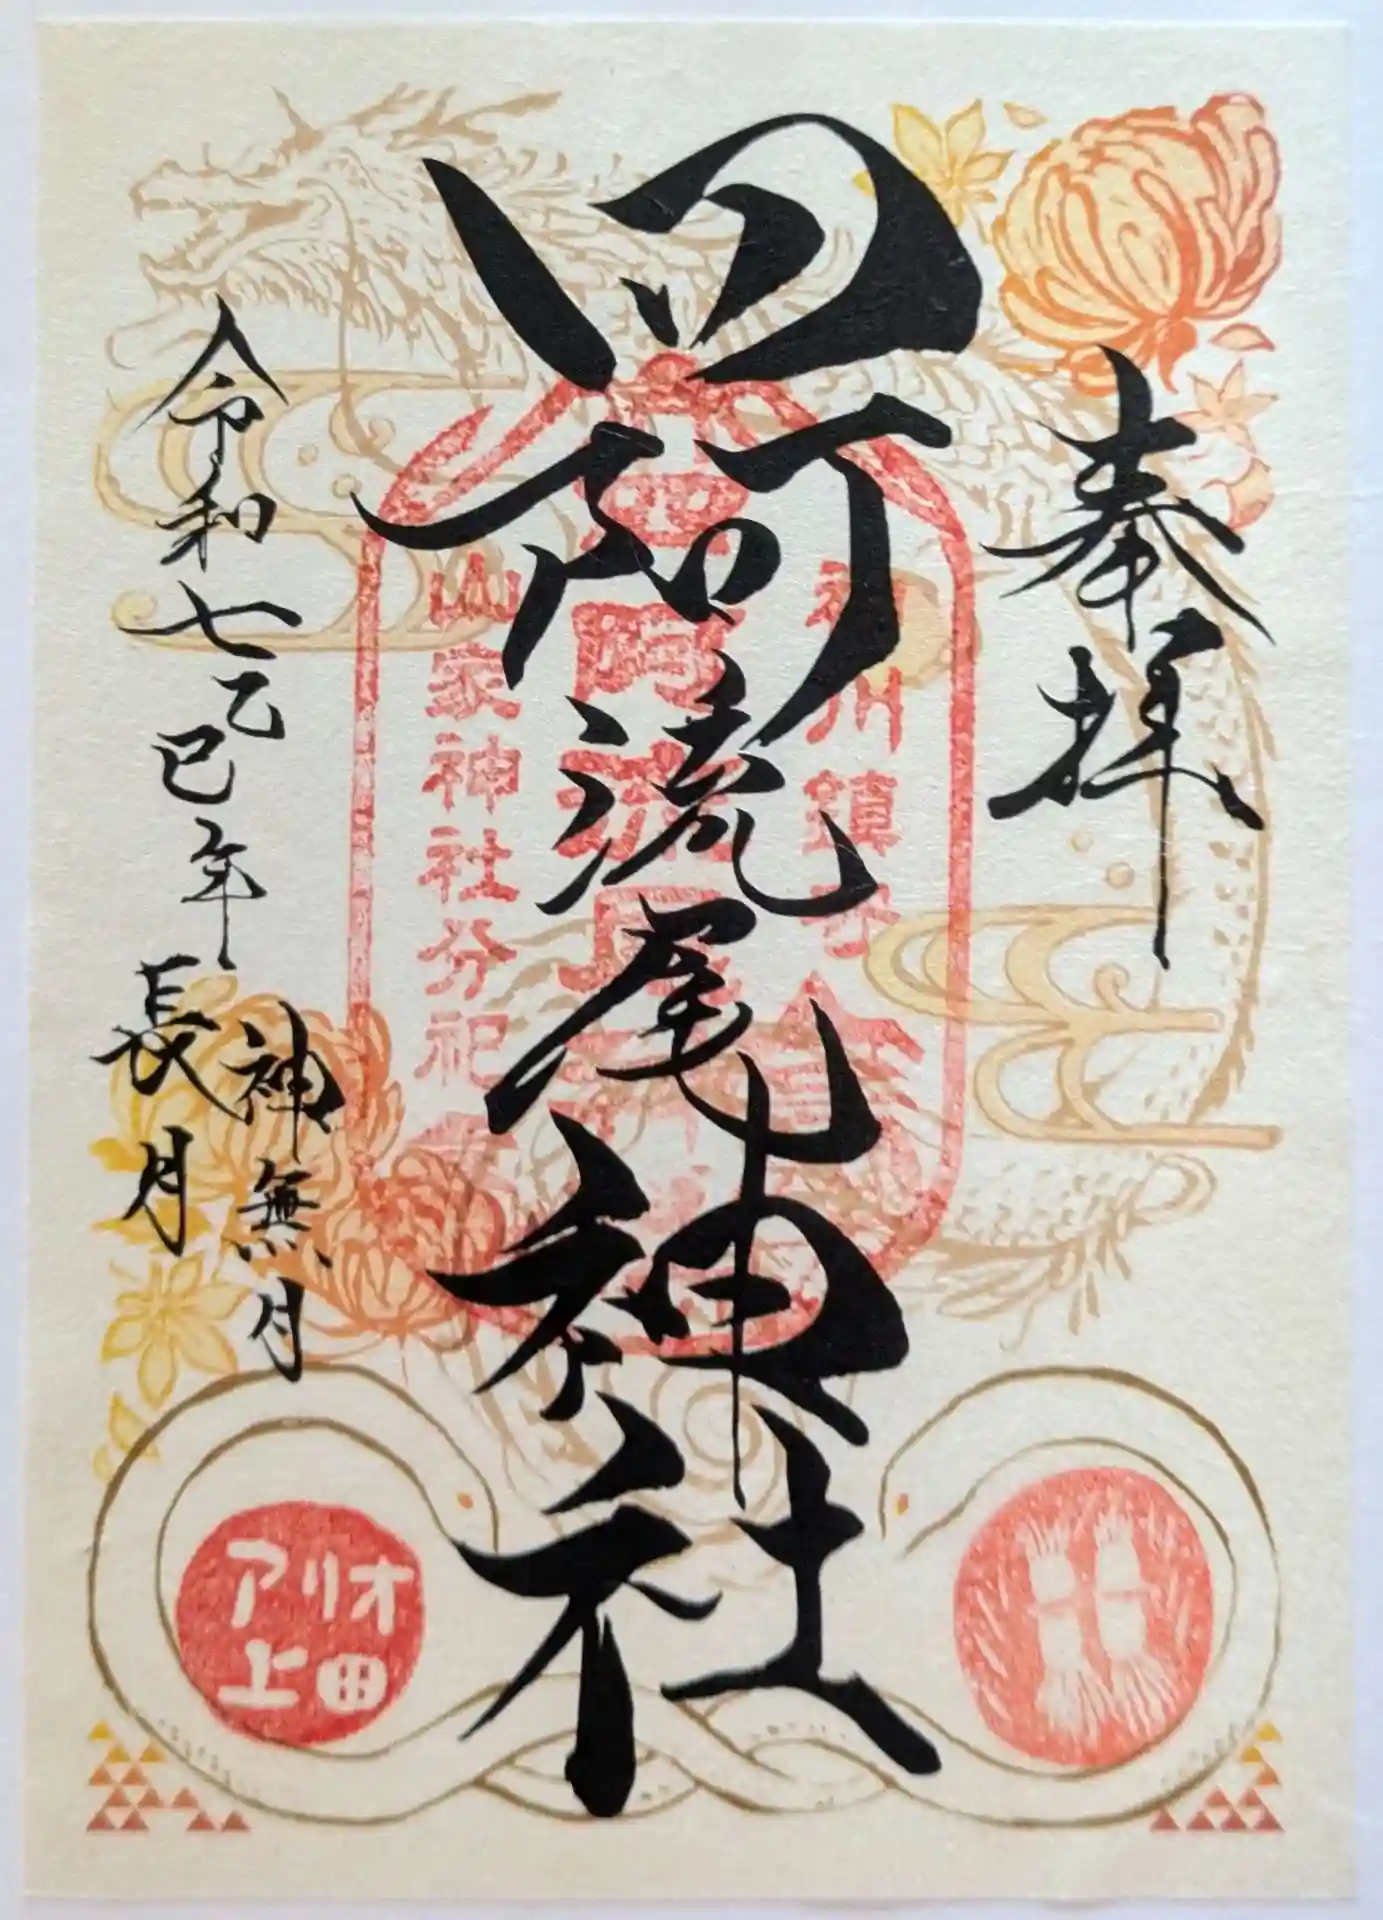 奉拝
四阿流尾神社
令和七乙巳年
神無月
長月
神川鎮守
山家神社分祀
アリオ
上田